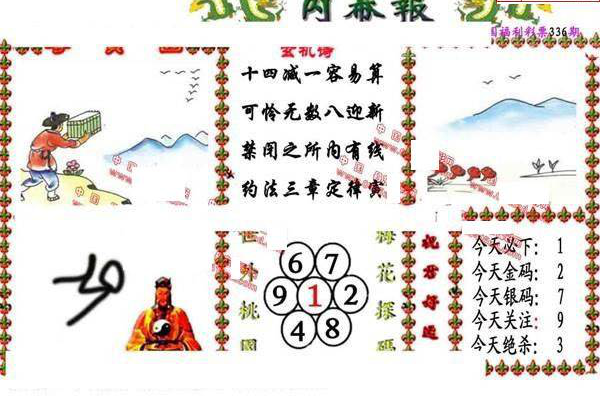 内幕報
福利彩票336期
玄机诗
十四减一容易算
可怜无数八迎新
禁闭之所内有线
约法三章定律寅
世外桃園
6 7
9 1 2
4 8
梅花探码
祝君好运
今天必下: 1
今天金码: 2
今天银码: 7
今天关注: 9
今天绝杀: 3